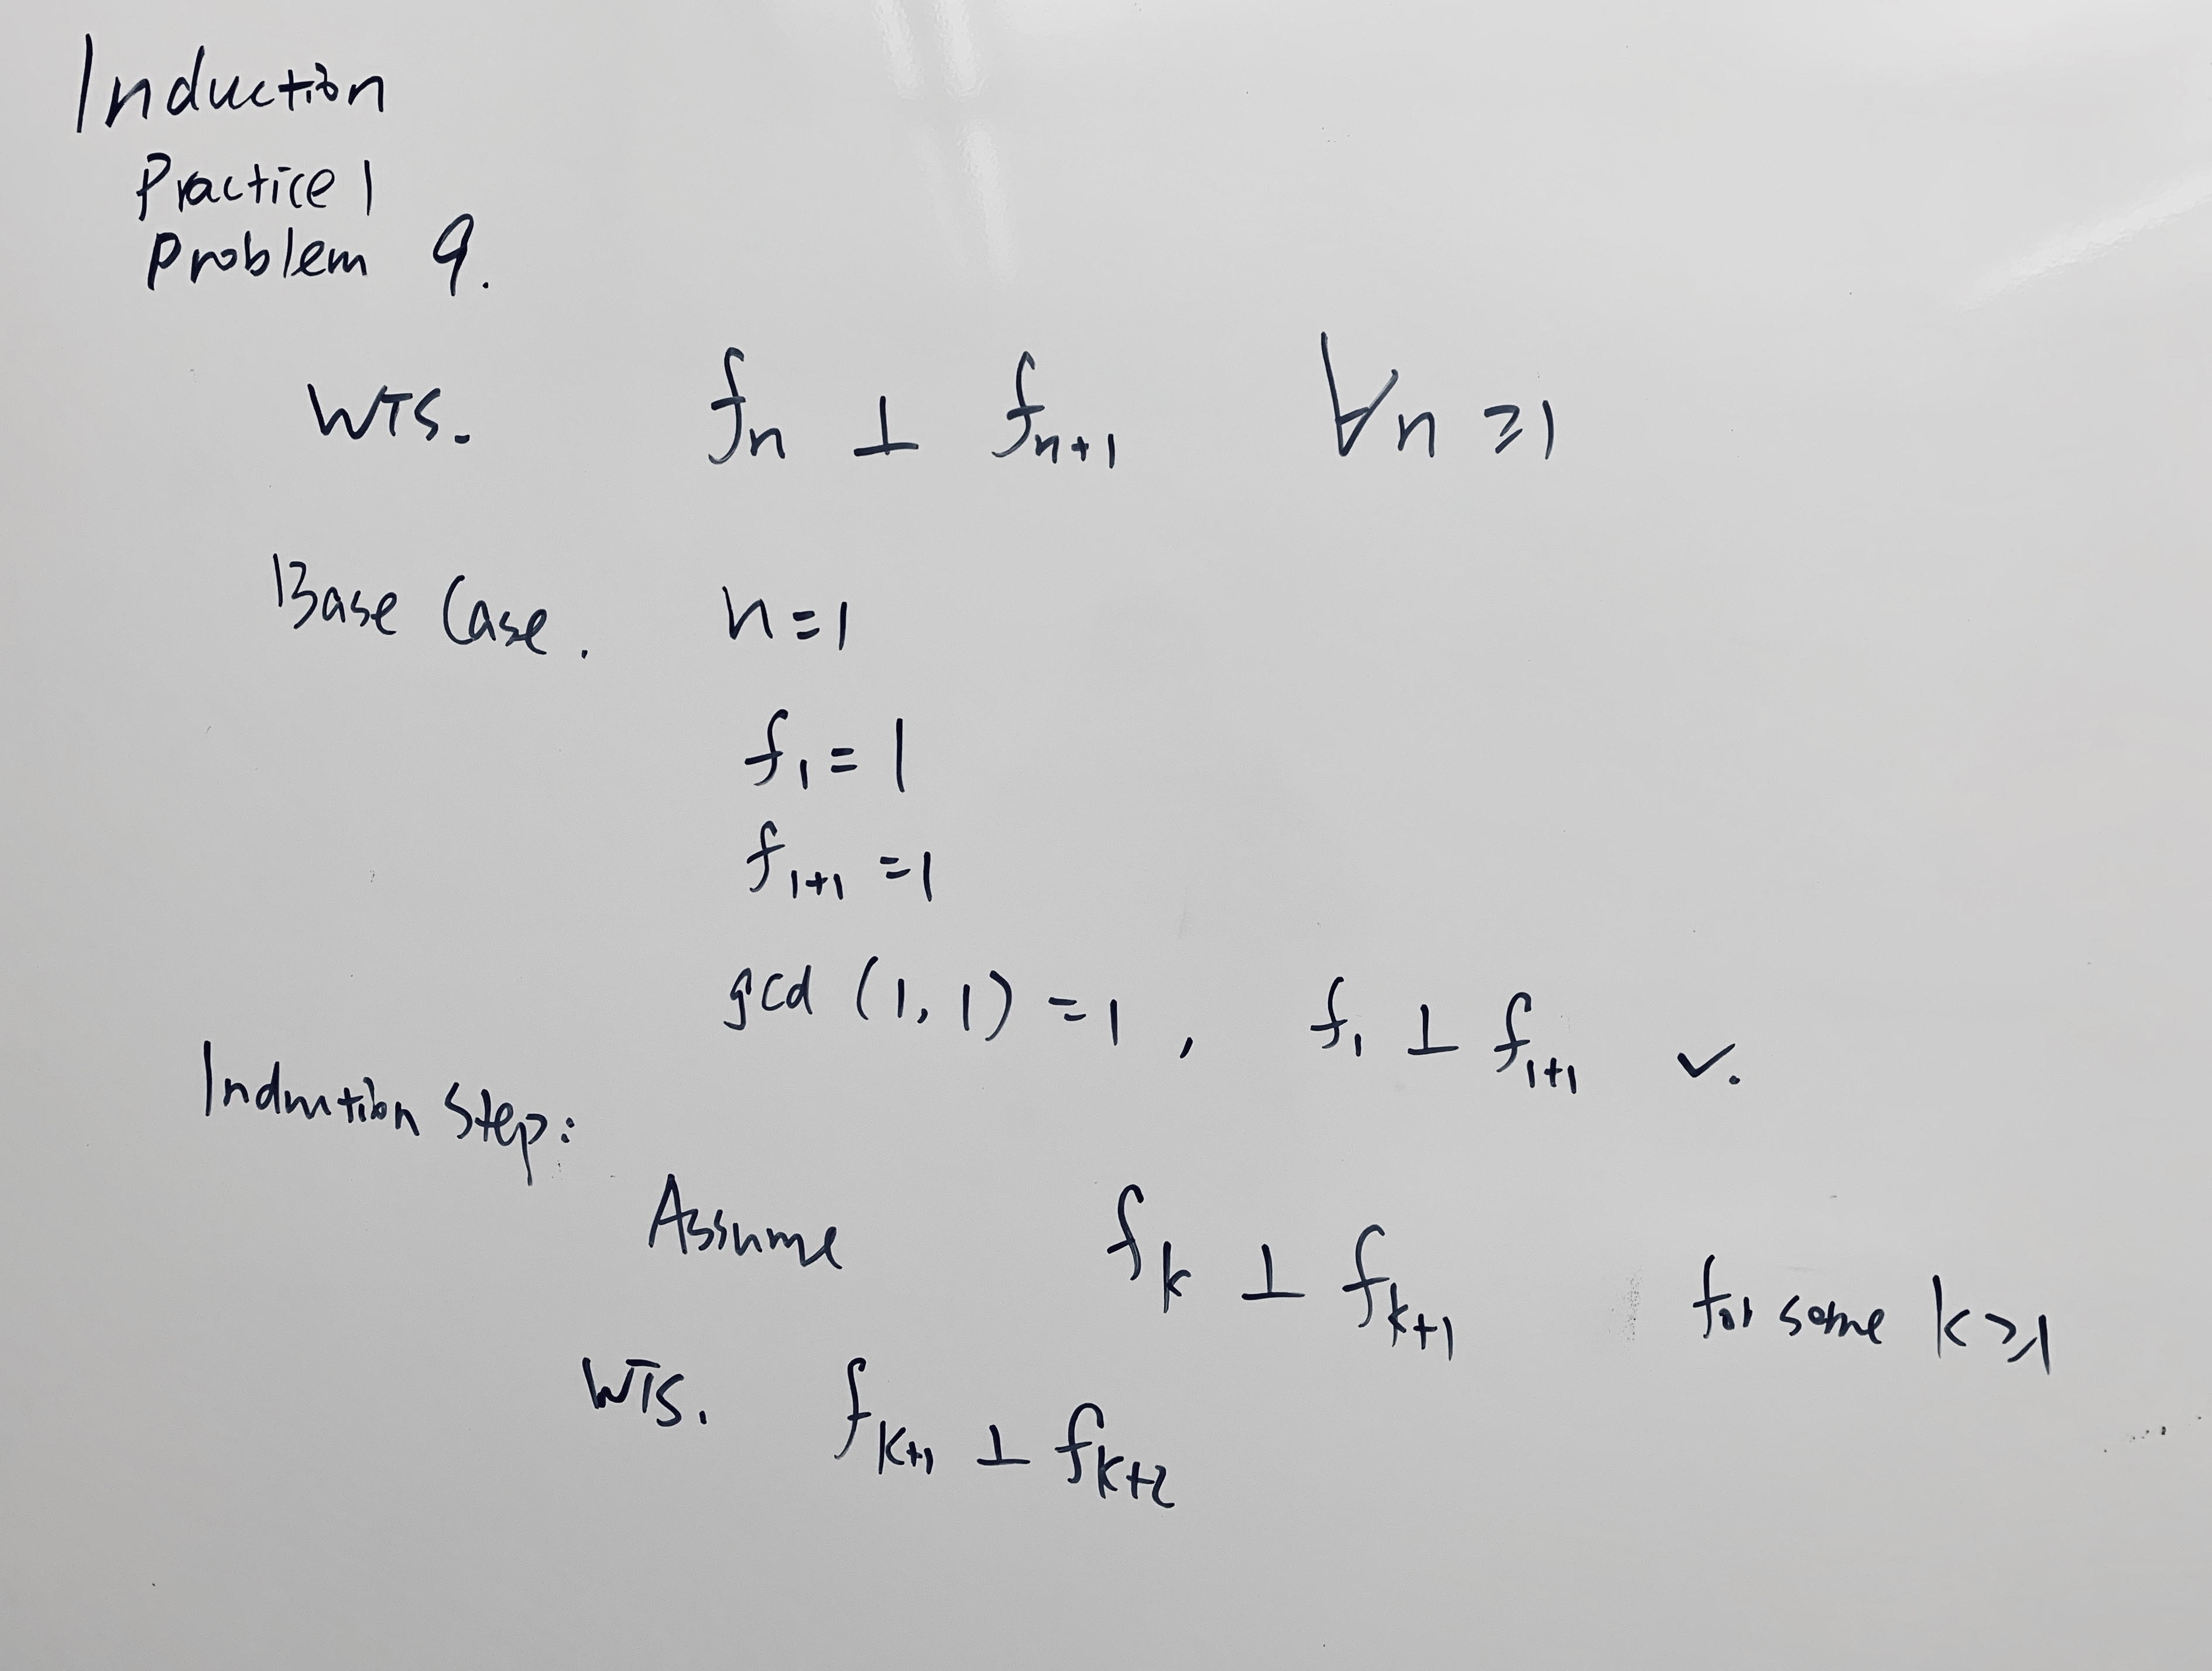 Induction
Practice 1
Problem 9.
WTS. fn ⊥ fn+1 ∀n ≥1
Base Case. n=1
f1 = 1
f1+1 =1
gcd (1, 1) =1, f1 ⊥ f1+1 ✓.
Induction Step:
Assume fk ⊥ fk+1 for some k≥1
WTS. fk+1 ⊥ fk+2